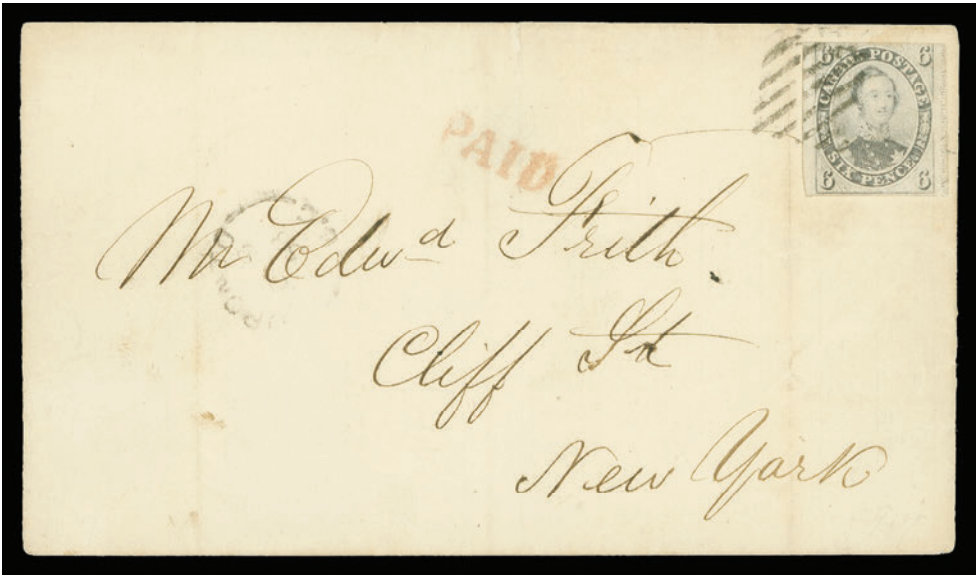 6 6
CANADA POSTAGE
SIX PENCE
6 6
PAID
Mr Edwd Frith
Cliff St
New York